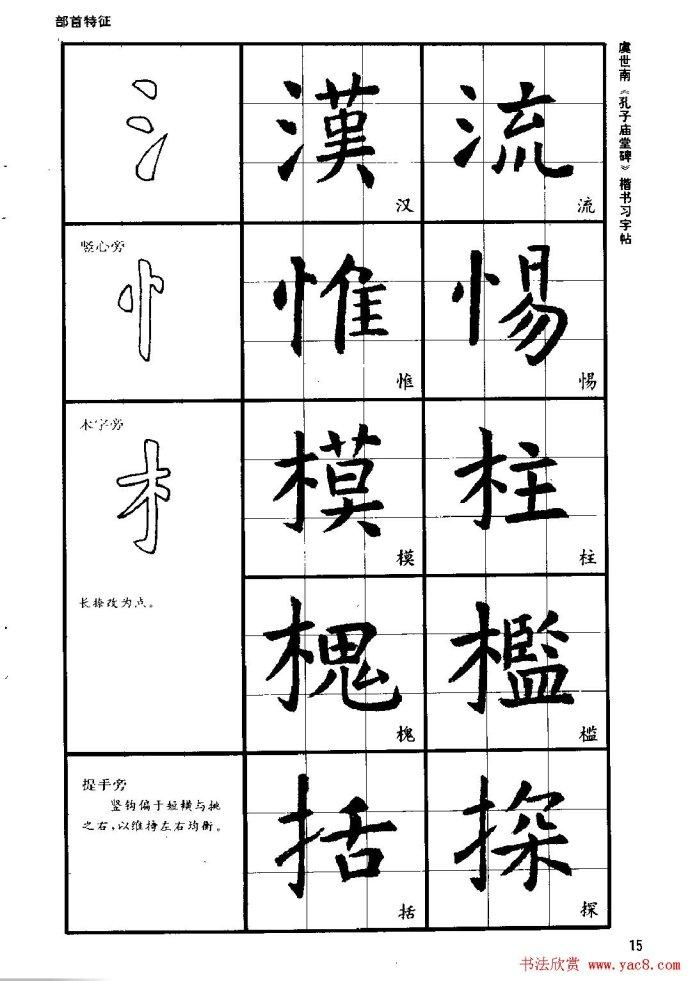 部首特征
虞世南《孔子庙堂碑》楷书习字帖
氵 漢 流
汉 流
竖心旁
忄 惟 惕
惟 惕
木字旁
木 模 柱
模 柱
长捺改为点。
槐 檻
槐 槛
提手旁
竖钩偏于短横与挑
之右,以维持左右均衡。
括 探
括 探
15
书法欣赏 www.yac8.com